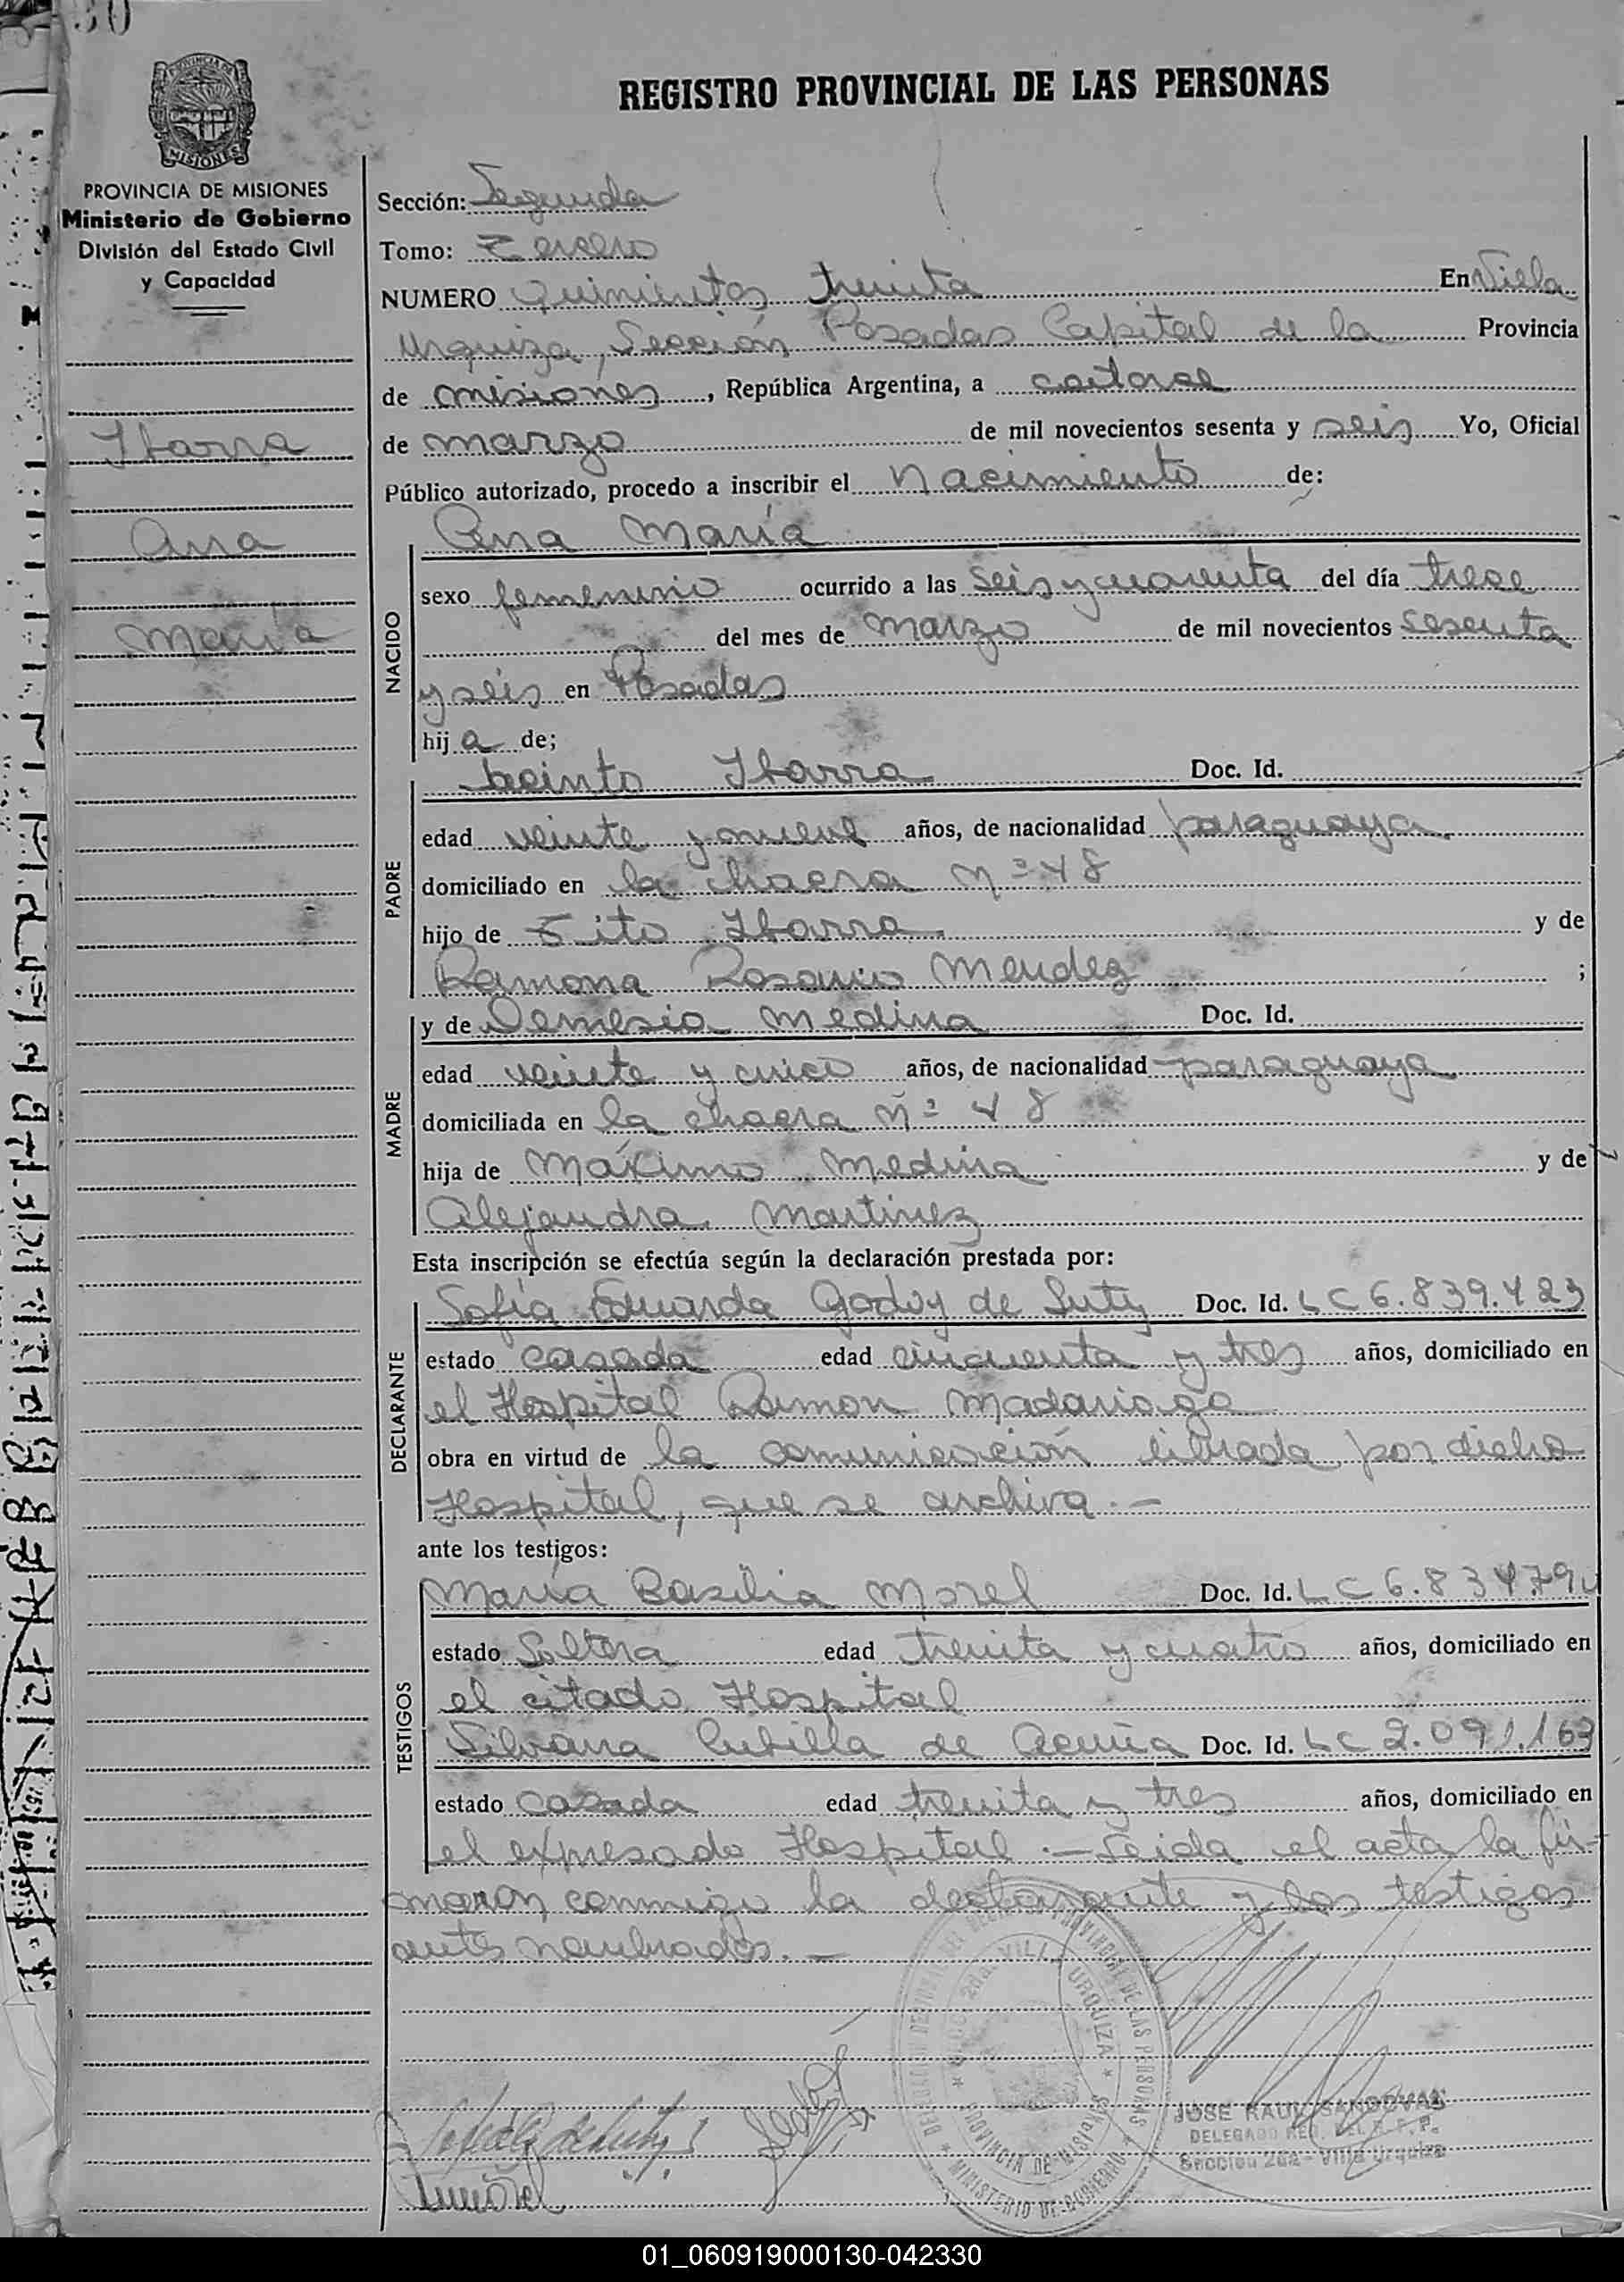 30
PROVINCIA DE
MISIONES
REGISTRO PROVINCIAL DE LAS PERSONAS
PROVINCIA DE MISIONES
Ministerio de Gobierno
División del Estado Civil
y Capacidad
Ibarra
Ana
María
Sección: Segunda
Tomo: Tercero
NUMERO Quinientos treinta En Villa
Urquiza, Sección Posadas Capital de la Provincia
de misiones, República Argentina, a catorce
de marzo de mil novecientos sesenta y seis Yo, Oficial
Público autorizado, procedo a inscribir el Nacimiento de:
Ana María
NACIDO
sexo femenino ocurrido a las seis y cuarenta del día trece
del mes de marzo de mil novecientos sesenta
y seis en Posadas
hija de;
Jacinto Ibarra Doc. Id.
PADRE
edad veinte y nueve años, de nacionalidad paraguaya
domiciliado en la chacra Nº 48
hijo de Tito Ibarra y de
Ramona Rosario Mendez ;
MADRE
y de Demesia Medina Doc. Id.
edad veinte y cinco años, de nacionalidad paraguaya
domiciliada en la chacra Nº 48
hija de Máximo Medina y de
Alejandra Martinez
Esta inscripción se efectúa según la declaración prestada por:
DECLARANTE
Sofía Eduarda Godoy de Luty Doc. Id. LC 6.839.423
estado casada edad cincuenta y tres años, domiciliado en
el Hospital Ramon Madariaga
obra en virtud de la comunicación librada por dicho
Hospital, que se archiva.—
ante los testigos:
TESTIGOS
María Basilia Morel Doc. Id. LC 6.834.794
estado Soltera edad treinta y cuatro años, domiciliado en
el citado Hospital
Silvana Cubilla de Acuña Doc. Id. LC 2.091.163
estado casada edad treinta y tres años, domiciliado en
el expresado Hospital.— Leida el acta la fir-
maron conmigo la declarante y los testigos
antes nombrados.—
DELEGACIÓN DEL REGISTRO PROVINCIAL DE LAS PERSONAS
VILLA URQUIZA
PROVINCIA DE MISIONES
MINISTERIO DE GOBIERNO
JOSE RAUL SANDOVAL
DELEGADO REG. DEL R. P. P.
Sección 2da - Villa Urquiza
01_060919000130-042330